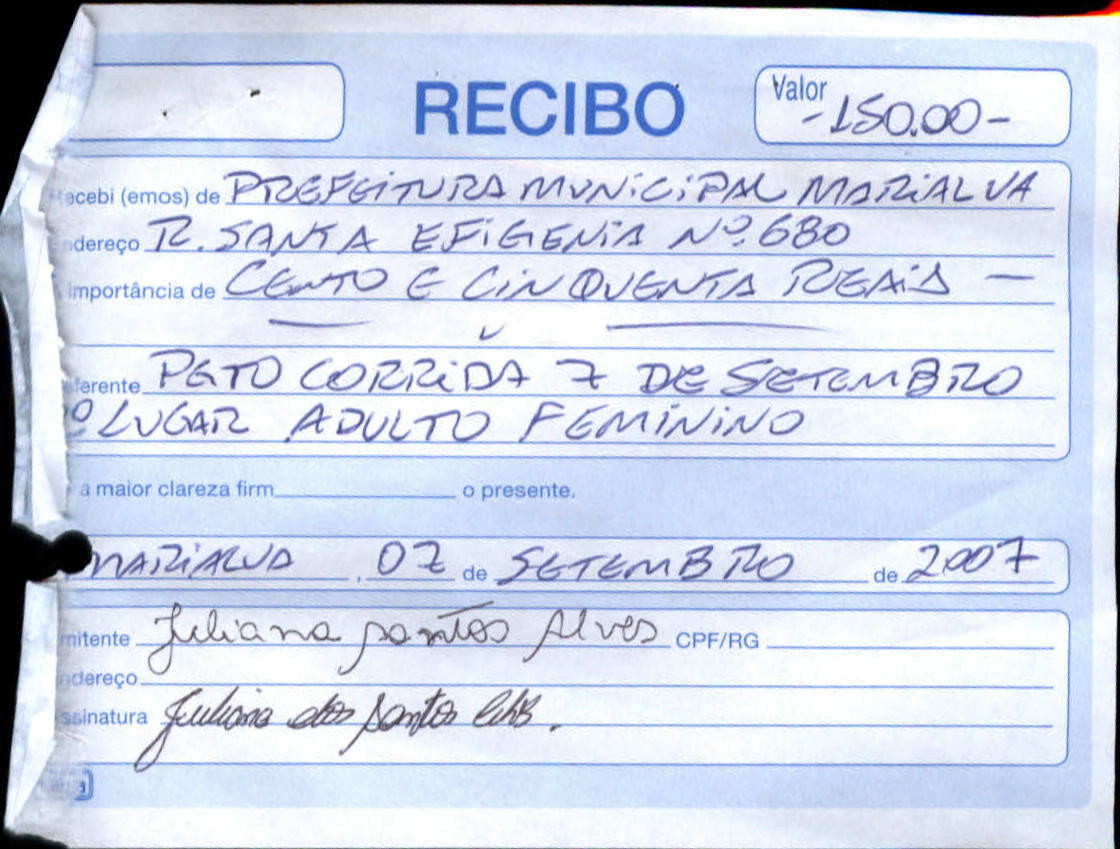 RECIBO
Valor
-150.00-
ecebi (emos) de PREFEITURA MUNICIPAL MARIALVA
ndereço R. SANTA EFIGENIA Nº 680
importância de CENTO E CINQUENTA REAIS —
ferente PGTO CORRIDA 7 DE SETEMBRO
º LUGAR ADULTO FEMININO
a maior clareza firm o presente.
MARIALVA, 07 de SETEMBRO de 2007
mitente Juliana santos Alves CPF/RG
ndereço
ssinatura Juliana dos Santos